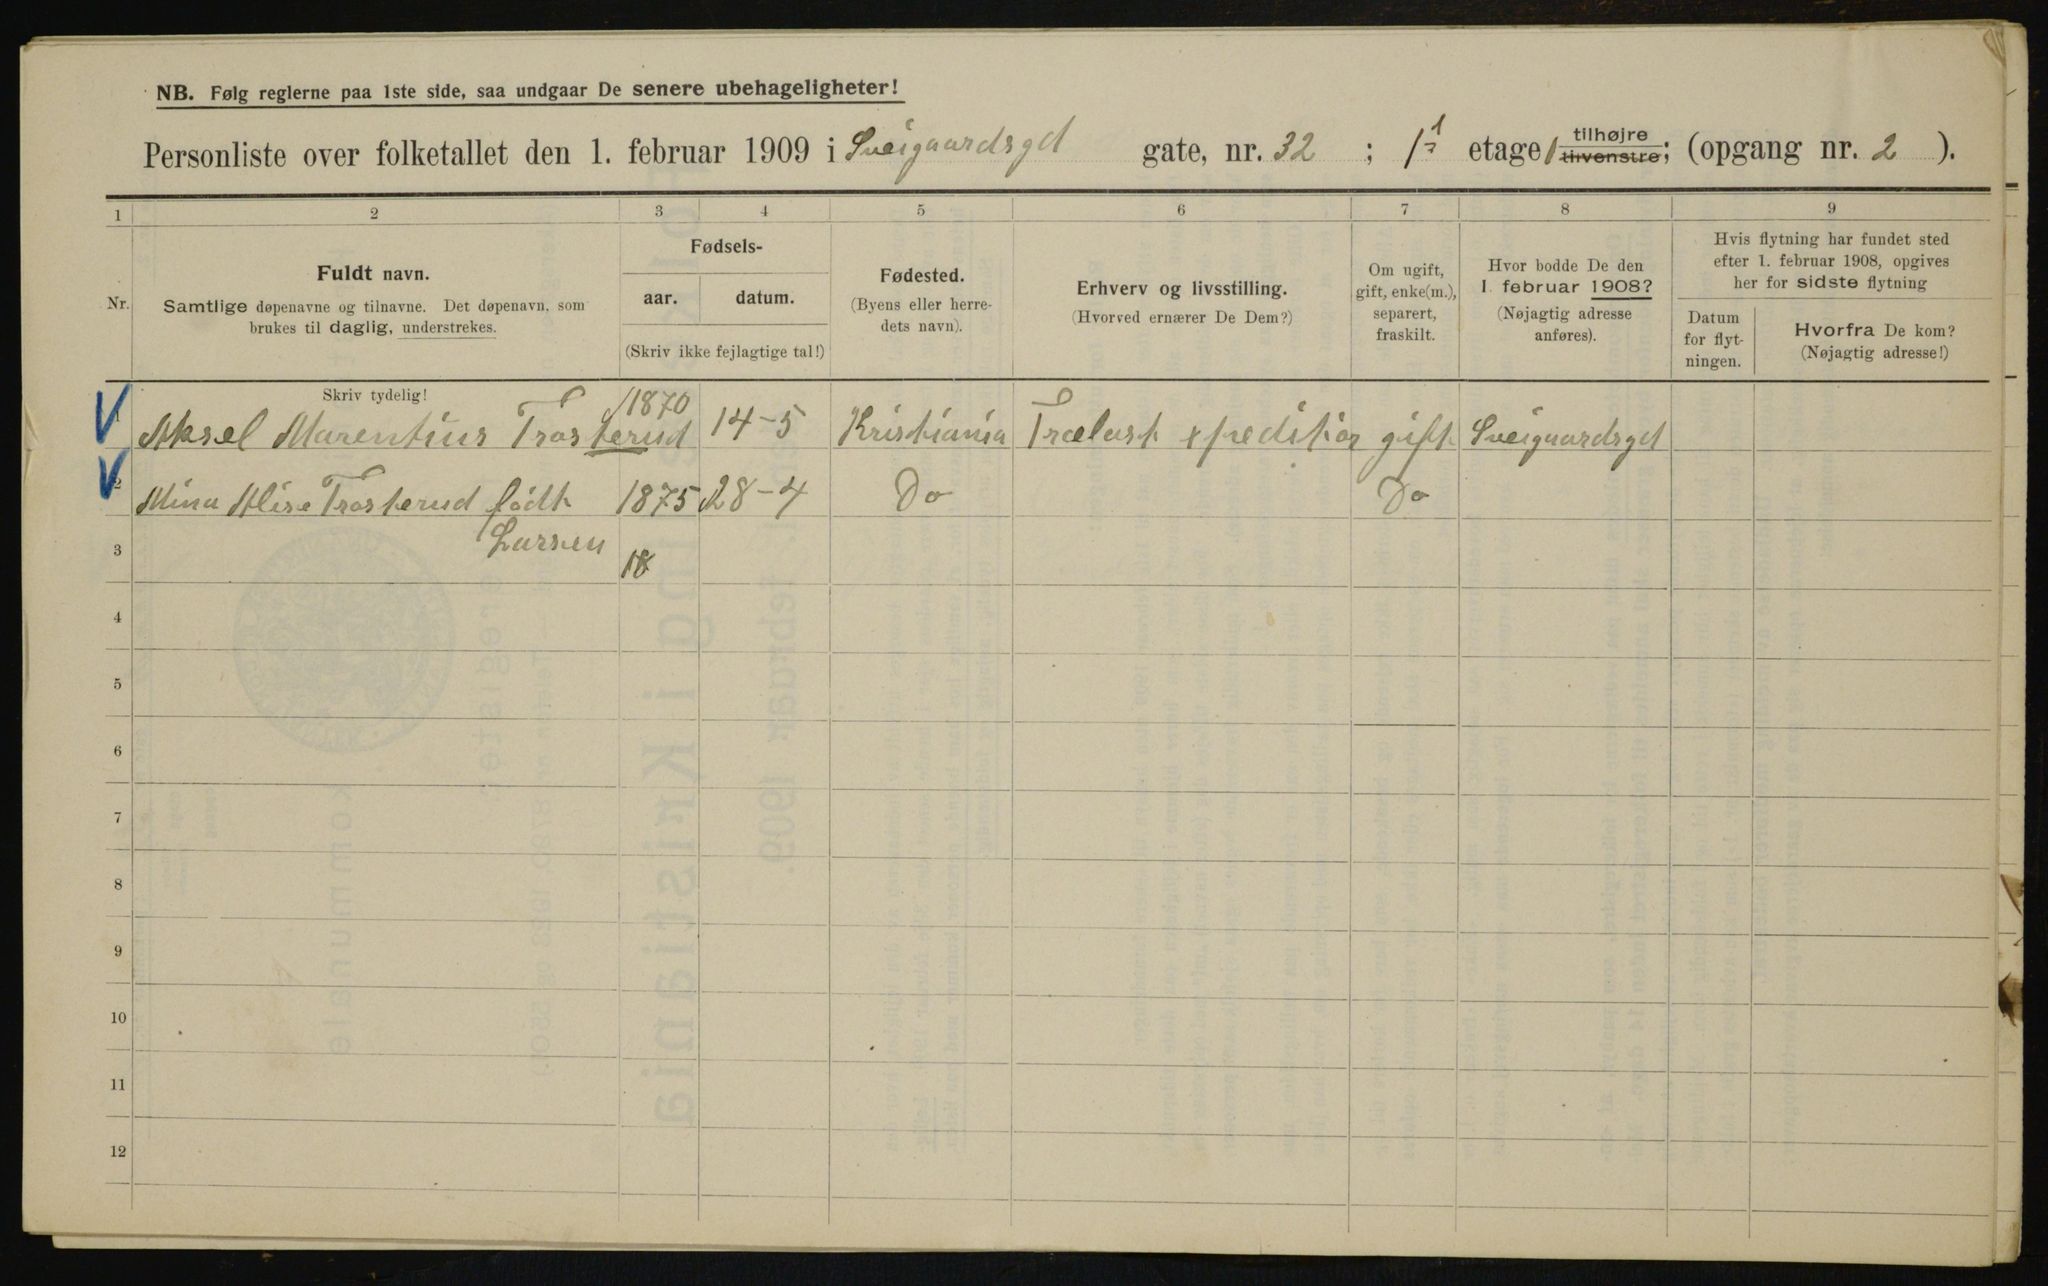 NB. Følg reglerne paa 1ste side, saa undgaar De senere ubehageligheter!
Personliste over folketallet den 1. februar 1909 i Sveigaardsgd gate, nr. 32 ; 1 etage 1 tilhøjre tilvenstre; (opgang nr. 2 ).
1 2 3 4 5 6 7 8 9
Nr.
Fuldt navn.
Samtlige døpenavne og tilnavne. Det døpenavn, som
brukes til daglig, understrekes.
Fødsels-
aar. datum.
(Skriv ikke fejlagtige tal!)
Fødested.
(Byens eller herre-
dets navn).
Erhverv og livsstilling.
(Hvorved ernærer De Dem?)
Om ugift,
gift, enke(m.),
separert,
fraskilt.
Hvor bodde De den
1. februar 1908?
(Nøjagtig adresse
anføres).
Hvis flytning har fundet sted
efter 1. februar 1908, opgives
her for sidste flytning
Datum
for flyt-
ningen.
Hvorfra De kom?
(Nøjagtig adresse!)
Skriv tydelig!
1 Aksel Marentius Trosterud 1870 14-5 Kristiania Trælast xpeditiør gift Sveigaardsgd
2 Mina Alise Trosterud født 1875 28-4 Do Do
Larsen
3 18
4
5
6
7
8
9
10
11
12